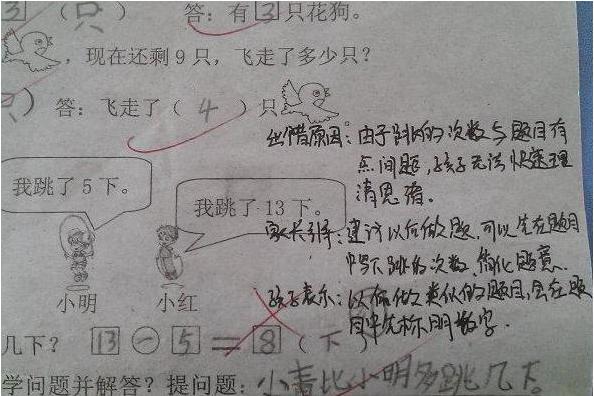 3 (只) 答：有3只花狗。
，现在还剩9只，飞走了多少只？
只) 答：飞走了（ 4 ）只
出错原因：由于跳的次数与题目有
点问题，孩子无法快速理
清思绪。
我跳了5下。
我跳了13下。
家长引导：建议以后做题，可以先在题目
中写下跳的次数，简化题意。
孩子表示：以后做类似的题目，会在题
目中先标明数字。
小明 小红
几下？ 13－5＝8（下
学问题并解答？提问题：小青比小明多跳几下。